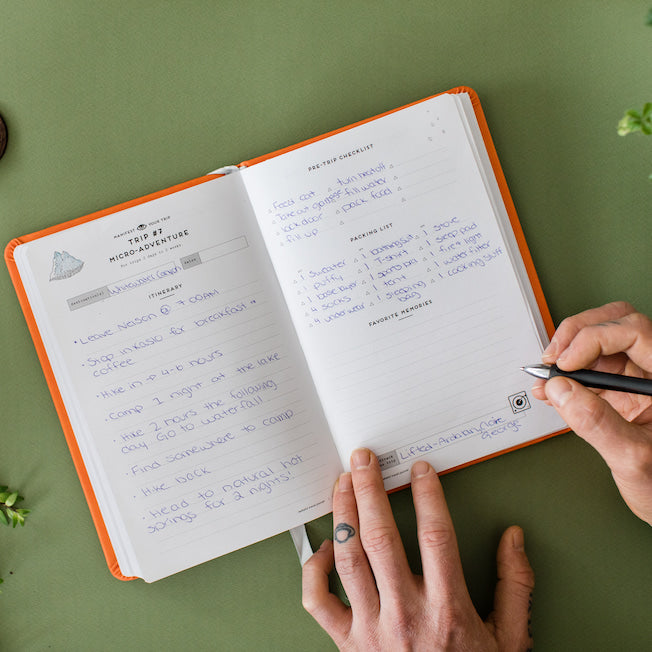 MANIFEST YOUR TRIP
TRIP #7
MICRO-ADVENTURE
Destination(s) Whitewater Canyon Dates
ITINERARY
• Leave Nelson @ 7:00AM
• Stop in Kaslo for breakfast +
coffee
• Hike in → 4-6 hours
• Camp 1 night at the lake
• Hike 2 hours the following
day. Go to waterfall
• Find somewhere to camp
• Hike back
• Head to natural hot
springs for 2 nights!
PRE-TRIP CHECKLIST
feed cat
turn heat off
garage
fill water
lock door
pack food
fill up
PACKING LIST
1 sweater
1 bathing suit
1 stove
1 puffy
1 T-shirt
1 sleep pad
1 base layer
1 sports bra
1 fire + light
4 socks
1 tent
1 water filter
4 underwear
1 sleeping
bag
1 cooking stuff
FAVORITE MEMORIES
Lifted-Arabian, Naïve
george